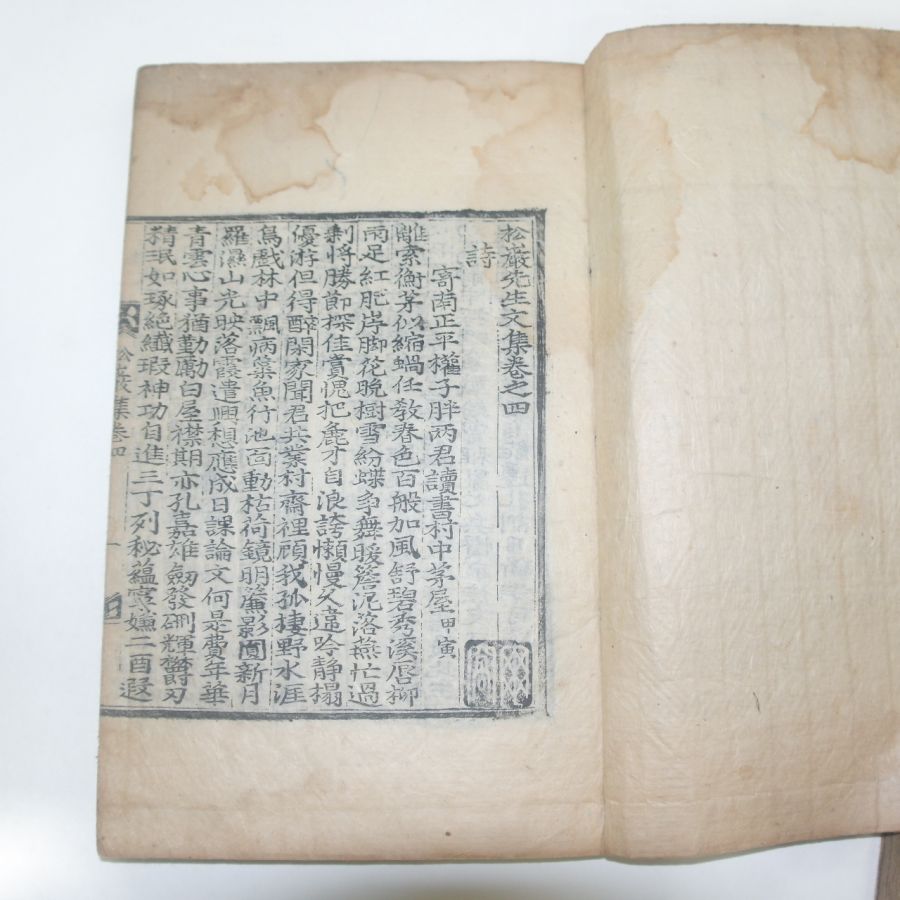 松巖先生文集卷之四
詩
寄南正平權子胖两君讀書村中茅屋甲寅
離索衡茅似縮蝸任教春色百般加風舒碧秀溪唇柳
雨足紅肥岸脚花晚樹雪紛蝶爭舞暖簷泥落燕忙過
剩將勝節探佳賞愧把麁才自浪誇懶慢久違吟靜榻
優游但得醉閑家聞君共業村齋裡顧我孤棲野水涯
鳥戲林中飄病葉魚行池面動枯荷鏡明簾影圓新月
羅濕山光映落霞遣興想應成日課論文何景費年華
青雲心事猶勤勵白屋襟期亦孔嘉雄劒發硎輝欝刃
精珉如琢絶纖瑕神功自進三丁列秘蘊寧嫌二酉遐
松巖集卷四
一